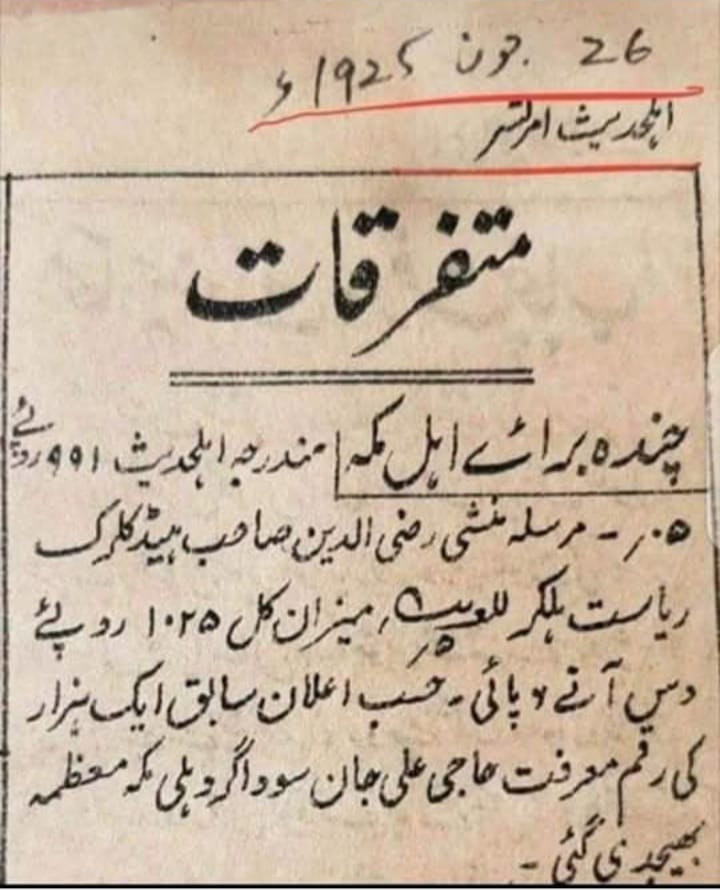 26 جون 1925ء
اہلحدیث امرتسر
متفرقات
چندہ برائے اہل مکہ مندرجہ اہلحدیث ۹۹۱ روپئے
۵؍ - مرسلہ منشی رضی الدین صاحب ہیڈ کلرک
ریاست ہلکر میزان کل ۱۰۲۵ روپئے
دس آنے ۶ پائی - حسب اعلان سابق ایک ہزار
کی رقم معرفت حاجی علی جان سوداگر دہلی مکہ معظمہ
بھیجدی گئی -